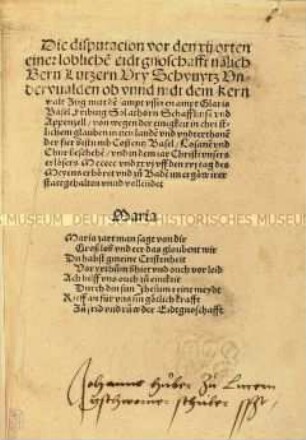 Die disputacion vor den xij orten
einer loblichē eidtgnoschafft nālich
Bern Lutzern Vry Schwytz Vn=
dervualden ob vnnd nidt dem kern
walt Zug mit dē ampt vsser ampt Glaris
Basel Friburg Solathorn Schaffhusē vnd
Appenzell, von wegen der einigkeit in christ=
lichem glauben in iren landē vnd vndterthanē
der fier bistumb Costentz Basel, Losanē vnd
Chur beschehē, vnd in dem iar Christi vnsers
erlösers Mcccc vnd xxvj vff den xvj tag des
Meyens erhöret vnd zů Badē im ergöw irer
statt gehalten vnnd vollendet
Maria
Maria zart man sagt von dir
Groß lob vnd eer das gloubent wir
Du habst gmeine Cristenheit
Vor yrthům bhiet vnd ouch vor leid
Ach hilff vns ouch zů einikeit
Durch din sun Jhesum reine meydt
Rieff an für vns sin götlich krafft
Zů frid vnd růw der Eidtgnoschafft
Johanns Hůber Zů Lucern